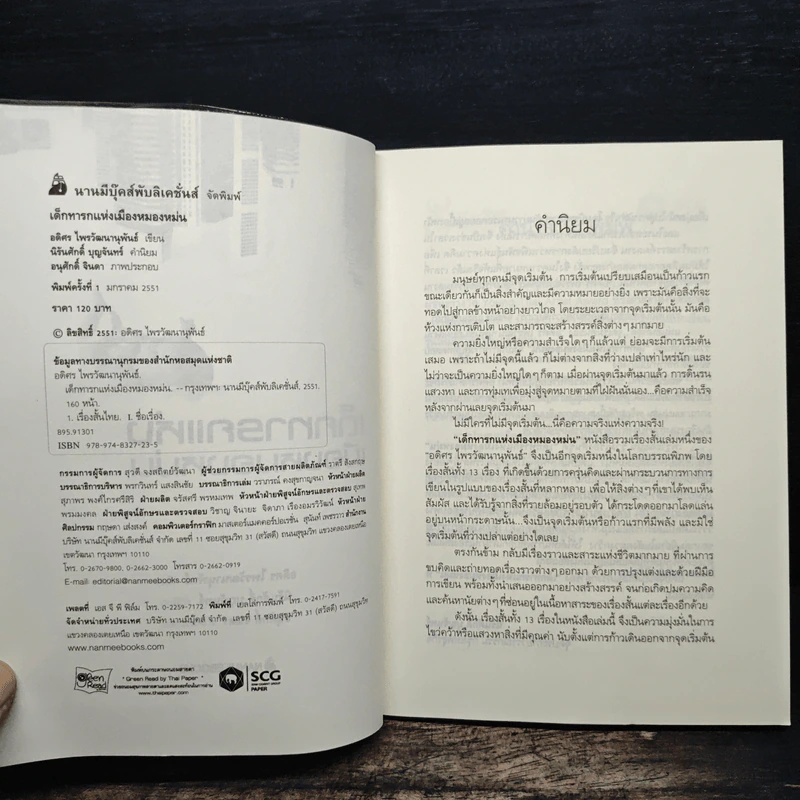 นานมีบุ๊คส์พับลิเคชั่นส์ จัดพิมพ์
เด็กทารกแห่งเมืองหมองหม่น
อดิศร ไพรวัฒนานุพันธ์ เขียน
นิรันศักดิ์ บุญจันทร์ คำนิยม
อนุศักดิ์ จินดา ภาพประกอบ
พิมพ์ครั้งที่ 1 มกราคม 2551
ราคา 120 บาท
© ลิขสิทธิ์ 2551: อดิศร ไพรวัฒนานุพันธ์
ข้อมูลทางบรรณานุกรมของสำนักหอสมุดแห่งชาติ
อดิศร ไพรวัฒนานุพันธ์.
เด็กทารกแห่งเมืองหมองหม่น. -- กรุงเทพฯ: นานมีบุ๊คส์พับลิเคชั่นส์, 2551.
160 หน้า.
1. เรื่องสั้นไทย. I. ชื่อเรื่อง.
895.91301
ISBN 978-974-8327-23-5
กรรมการผู้จัดการ สุวดี จงสถิตย์วัฒนา ผู้ช่วยกรรมการผู้จัดการสายผลิตภัณฑ์ ราตรี
บรรณาธิการบริหาร พรกวินทร์ แสงสินชัย บรรณาธิการเล่ม วราภรณ์ คงสุขกาญจนา หัวหน้าฝ่ายผลิต
สุภาพร พงศ์ไกรศรีสิริ ฝ่ายผลิต จรัสศรี พรหมเทพ หัวหน้าฝ่ายพิสูจน์อักษรและตรวจสอบ
พรมมงคล ฝ่ายพิสูจน์อักษรและตรวจสอบ วิชาญ จินายะ จิดาภา เรืองอมรวิวัฒน์ หัวหน้าฝ่าย
ศิลปกรรม กฤษดา เส่งสงค์ คอมพิวเตอร์กราฟิก มาสเตอร์แมคคอร์ปอเรชั่น สุนันท์ เพชรวาว สำนักงาน
บริษัท นานมีบุ๊คส์พับลิเคชั่นส์ จำกัด เลขที่ 11 ซอยสุขุมวิท 31 (สวัสดี) ถนนสุขุมวิท แขวงคลองเตยเหนือ
เขตวัฒนา กรุงเทพฯ 10110
โทร. 0-2670-9800, 0-2662-3000 โทรสาร 0-2662-0919
E-mail: editorial@nanmeebooks.com
เพลตที่ เอส จี พี ฟิล์ม โทร. 0-2259-7172 พิมพ์ที่ เยลโล่การพิมพ์ โทร. 0-2417-7591
จัดจำหน่ายทั่วประเทศ บริษัท นานมีบุ๊คส์ จำกัด เลขที่ 11 ซอยสุขุมวิท 31 (สวัสดี) ถนนสุขุมวิท
แขวงคลองเตยเหนือ เขตวัฒนา กรุงเทพฯ 10110
www.nanmeebooks.com
Green Read
พิมพ์บนกระดาษถนอมสายตา
"Green Read by Thai Paper"
www.thaipaper.com
SCG
PAPER
คำนิยม
มนุษย์ทุกคนมีจุดเริ่มต้น การเริ่มต้นเปรียบเสมือนเป็นก้าวแรก
ขณะเดียวกันก็เป็นสิ่งสำคัญและมีความหมายอย่างยิ่ง เพราะมันคือสิ่งที่จะ
ทอดไปสู่กาลข้างหน้าอย่างยาวไกล โดยระยะเวลาจากจุดเริ่มต้นนั้น มันคือ
ห้วงแห่งการเติบโต และสามารถจะสร้างสรรค์สิ่งต่างๆ มากมาย
ความยิ่งใหญ่หรือความสำเร็จใดๆ ก็แล้วแต่ ย่อมจะมีการเริ่มต้น
เสมอ เพราะถ้าไม่มีจุดนี้แล้ว ก็ไม่ต่างจากสิ่งที่ว่างเปล่าเท่าไหร่นัก และ
ไม่ว่าจะเป็นความยิ่งใหญ่ใดๆ ก็ตาม เมื่อผ่านจุดเริ่มต้นมาแล้ว การดิ้นรน
แสวงหา และการทุ่มเทเพื่อมุ่งสู่จุดหมายตามที่ใฝ่ฝันนั่นเอง...คือความสำเร็จ
หลังจากผ่านเลยจุดเริ่มต้นมา
ไม่มีใครที่ไม่มีจุดเริ่มต้น...นี่คือความจริงแห่งความจริง!
"เด็กทารกแห่งเมืองหมองหม่น" หนังสือรวมเรื่องสั้นเล่มหนึ่งของ
"อดิศร ไพรวัฒนานุพันธ์" จึงเป็นอีกจุดเริ่มหนึ่งในโลกบรรณพิภพ โดย
เรื่องสั้นทั้ง 13 เรื่อง ที่เกิดขึ้นด้วยการครุ่นคิดและผ่านกระบวนการทางการ
เขียนในรูปแบบของเรื่องสั้นที่หลากหลาย เพื่อให้สิ่งต่างๆ ที่เขาได้พบเห็น
สัมผัส และได้รับรู้จากสิ่งที่รายล้อมอยู่รอบตัว ได้กระโดดออกมาโลดแล่น
อยู่บนหน้ากระดาษนั้น...จึงเป็นจุดเริ่มต้นหรือก้าวแรกที่มีพลัง และมิใช่
จุดเริ่มต้นที่ว่างเปล่าแต่อย่างใดเลย
ตรงกันข้าม กลับมีเรื่องราวและสาระแห่งชีวิตมากมาย ที่ผ่านการ
ขบคิดและถ่ายทอดเรื่องราวต่างๆ ออกมา ด้วยการปรุงแต่งและด้วยฝีมือ
การเขียน พร้อมทั้งนำเสนอออกมาอย่างสร้างสรรค์ จนก่อเกิดปมความคิด
และค้นหานัยต่างๆ ที่ซ่อนอยู่ในเนื้อหาสาระของเรื่องสั้นแต่ละเรื่องอีกด้วย
ดังนั้น เรื่องสั้นทั้ง 13 เรื่องในหนังสือเล่มนี้ จึงเป็นความมุ่งมั่นในการ
ไขว่คว้าหรือแสวงหาสิ่งที่มีคุณค่า นับตั้งแต่การก้าวเดินออกจากจุดเริ่มต้น